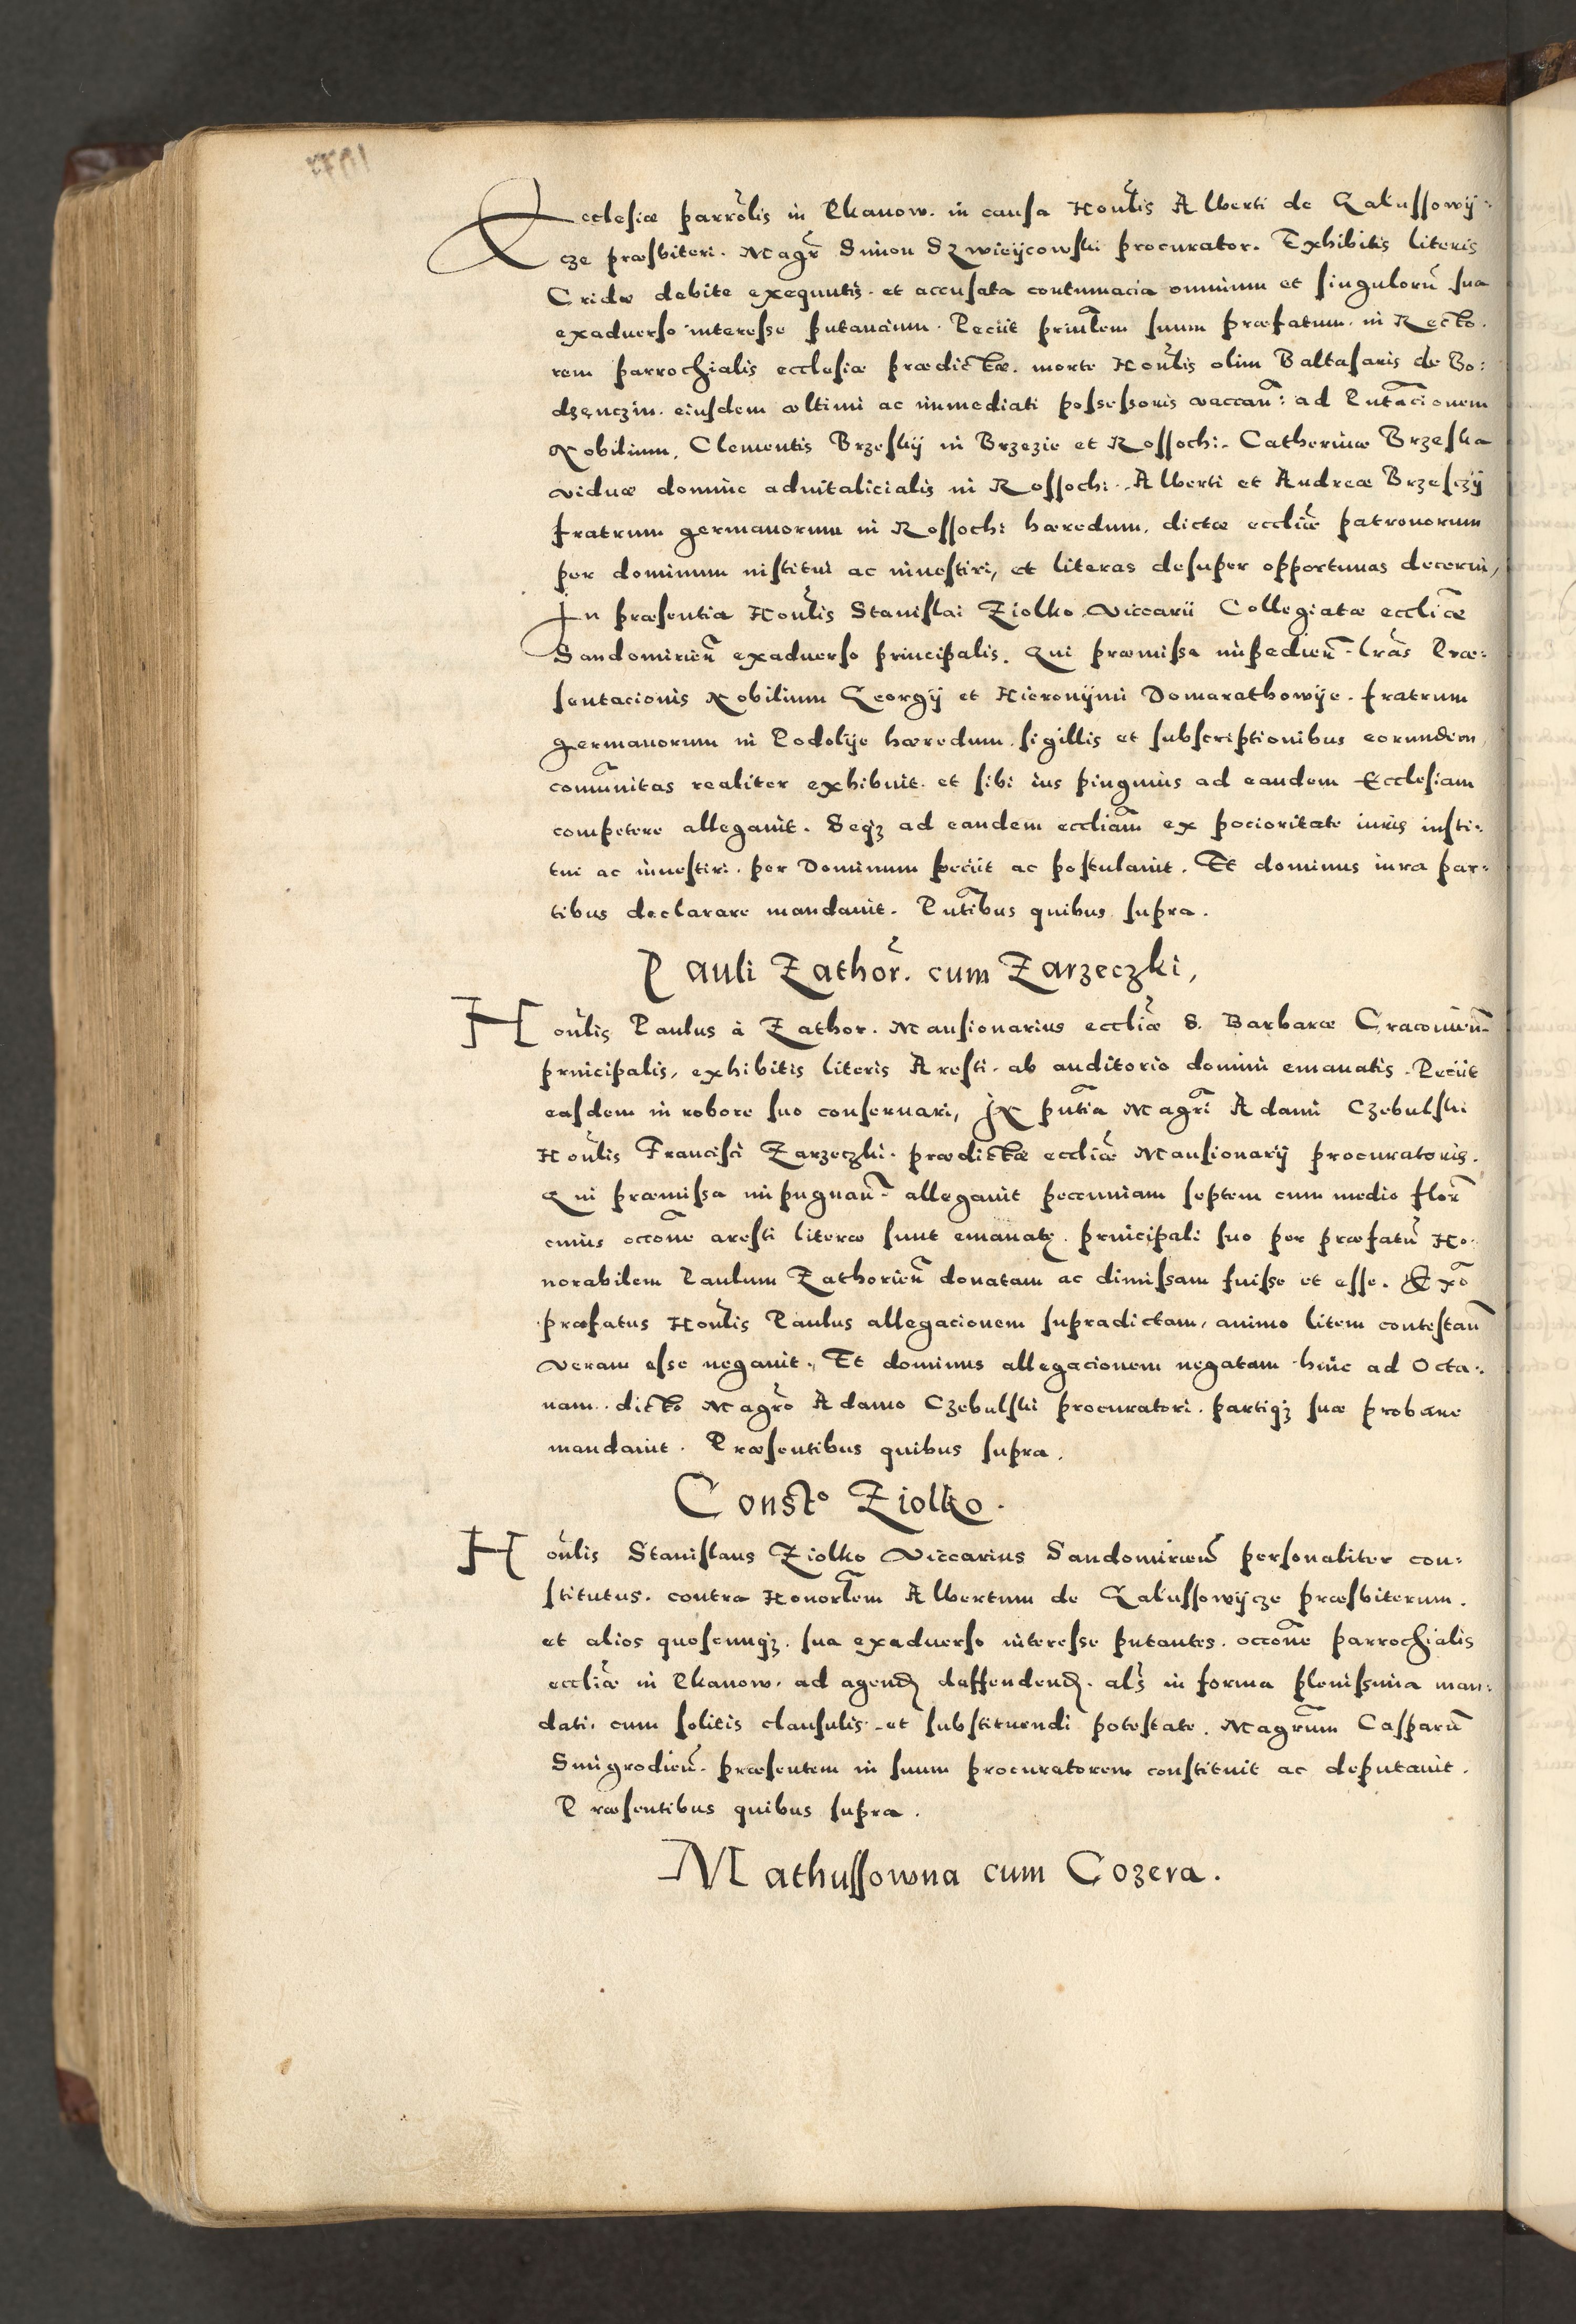 Ecclesiæ parrolis in Pkanow. in causa Honlis Alberti de Galussowij:
cze præsbiteri. Magr Simon Szwieijcowski procurator. Exhibitis literis
Cridæ debite exequutis. et accusata contumacia omnium et singulorū sua
exaduerso interesse putancium. Peciit prinlem suum præfatum. in Recto.
rem parrochialis ecclesiæ prædictæ. morte Honlis olim Baltasaris de Bo:
dzęnczin. eiusdem vltimi ac immediati possessoris vaccan: ad Pntacionem
Nobilium, Clementis Brzeskij in Brzezie et Rossochi. Catherinæ Brzeska
viduæ dominæ aduitalicialis in Rossochi. Alberti et Andreæ Brzesczij
fratrum germanorum in Rossochi hæredum. dictæ eccliæ patronorum
per dominum institui ac inuestiri, et literas desuper opportunas decerni,
In præsentia Honlis Stanislai Ziolko Viccarii Collegiatæ eccliæ
Sandomirien exaduerso principalis. Qui præmissa impedien. lras Præ:
sentacionis Nobilium Georgij et Hieronijmi Domarathowije. fratrum
germanorum in Podolije hæredum. sigillis et subscriptionibus eorundem
comunitas realiter exhibuit. et sibi ius pinguius ad eandem Ecclesiam
competere allegauit. Seqz ad eandem eccliam ex pocioritate iuris insti:
tui ac inuestiri. per Dominum peciit ac postulauit. Et dominus iura par:
tibus declarare mandauit. Pntibus quibus supra.
Pauli Zathor. cum Zarzeczki,
Honlis Paulus à Zathor. Mansionarius eccliæ S. Barbaræ Cracouien
principalis, exhibitis literis Aresti. ab auditorio domini emanatis. Peciit
easdem in robore suo conseruari, In pntia Magri Adami Czebulski
Honlis Francisci Zarzeczki. prædictæ eccliæ Mansionarij procuratoris.
Qui præmissa impugnan. allegauit pecuniam septem cum medio floren
cuius occone aresti literæ sunt emanatę. principali suo per præfatū Ho.
norabilem Paulum Zathorien donatam ac dimissam fuisse et esse. Exo
præfatus Honlis Paulus allegacionem supradictam, animo litem contestan
veram esse negauit. Et dominus allegacionem negatam hinc ad Octa:
uam. dicto Magro Adamo Czebulski procuratori. partiqz suæ probare
mandauit. Præsentibus quibus supra.
Consto Ziolko.
Honlis Stanislaus Ziolko Viccarius Sandomirien personaliter con:
stitutus. contra Honorlem Albertum de Galussowijcze præsbiterum.
et alios quoscunqz. sua exaduerso interesse putantes. occone parrochialis
eccliæ in Pkanow. ad agend deffendend. als in forma plenissima man:
dati. cum solitis clausulis. et substituendi potestate. Magrum Casparū
Smigrodien. præsentem in suum procuratorem constituit ac deputauit.
Præsentibus quibus supra.
Mathussowna cum Cozera.